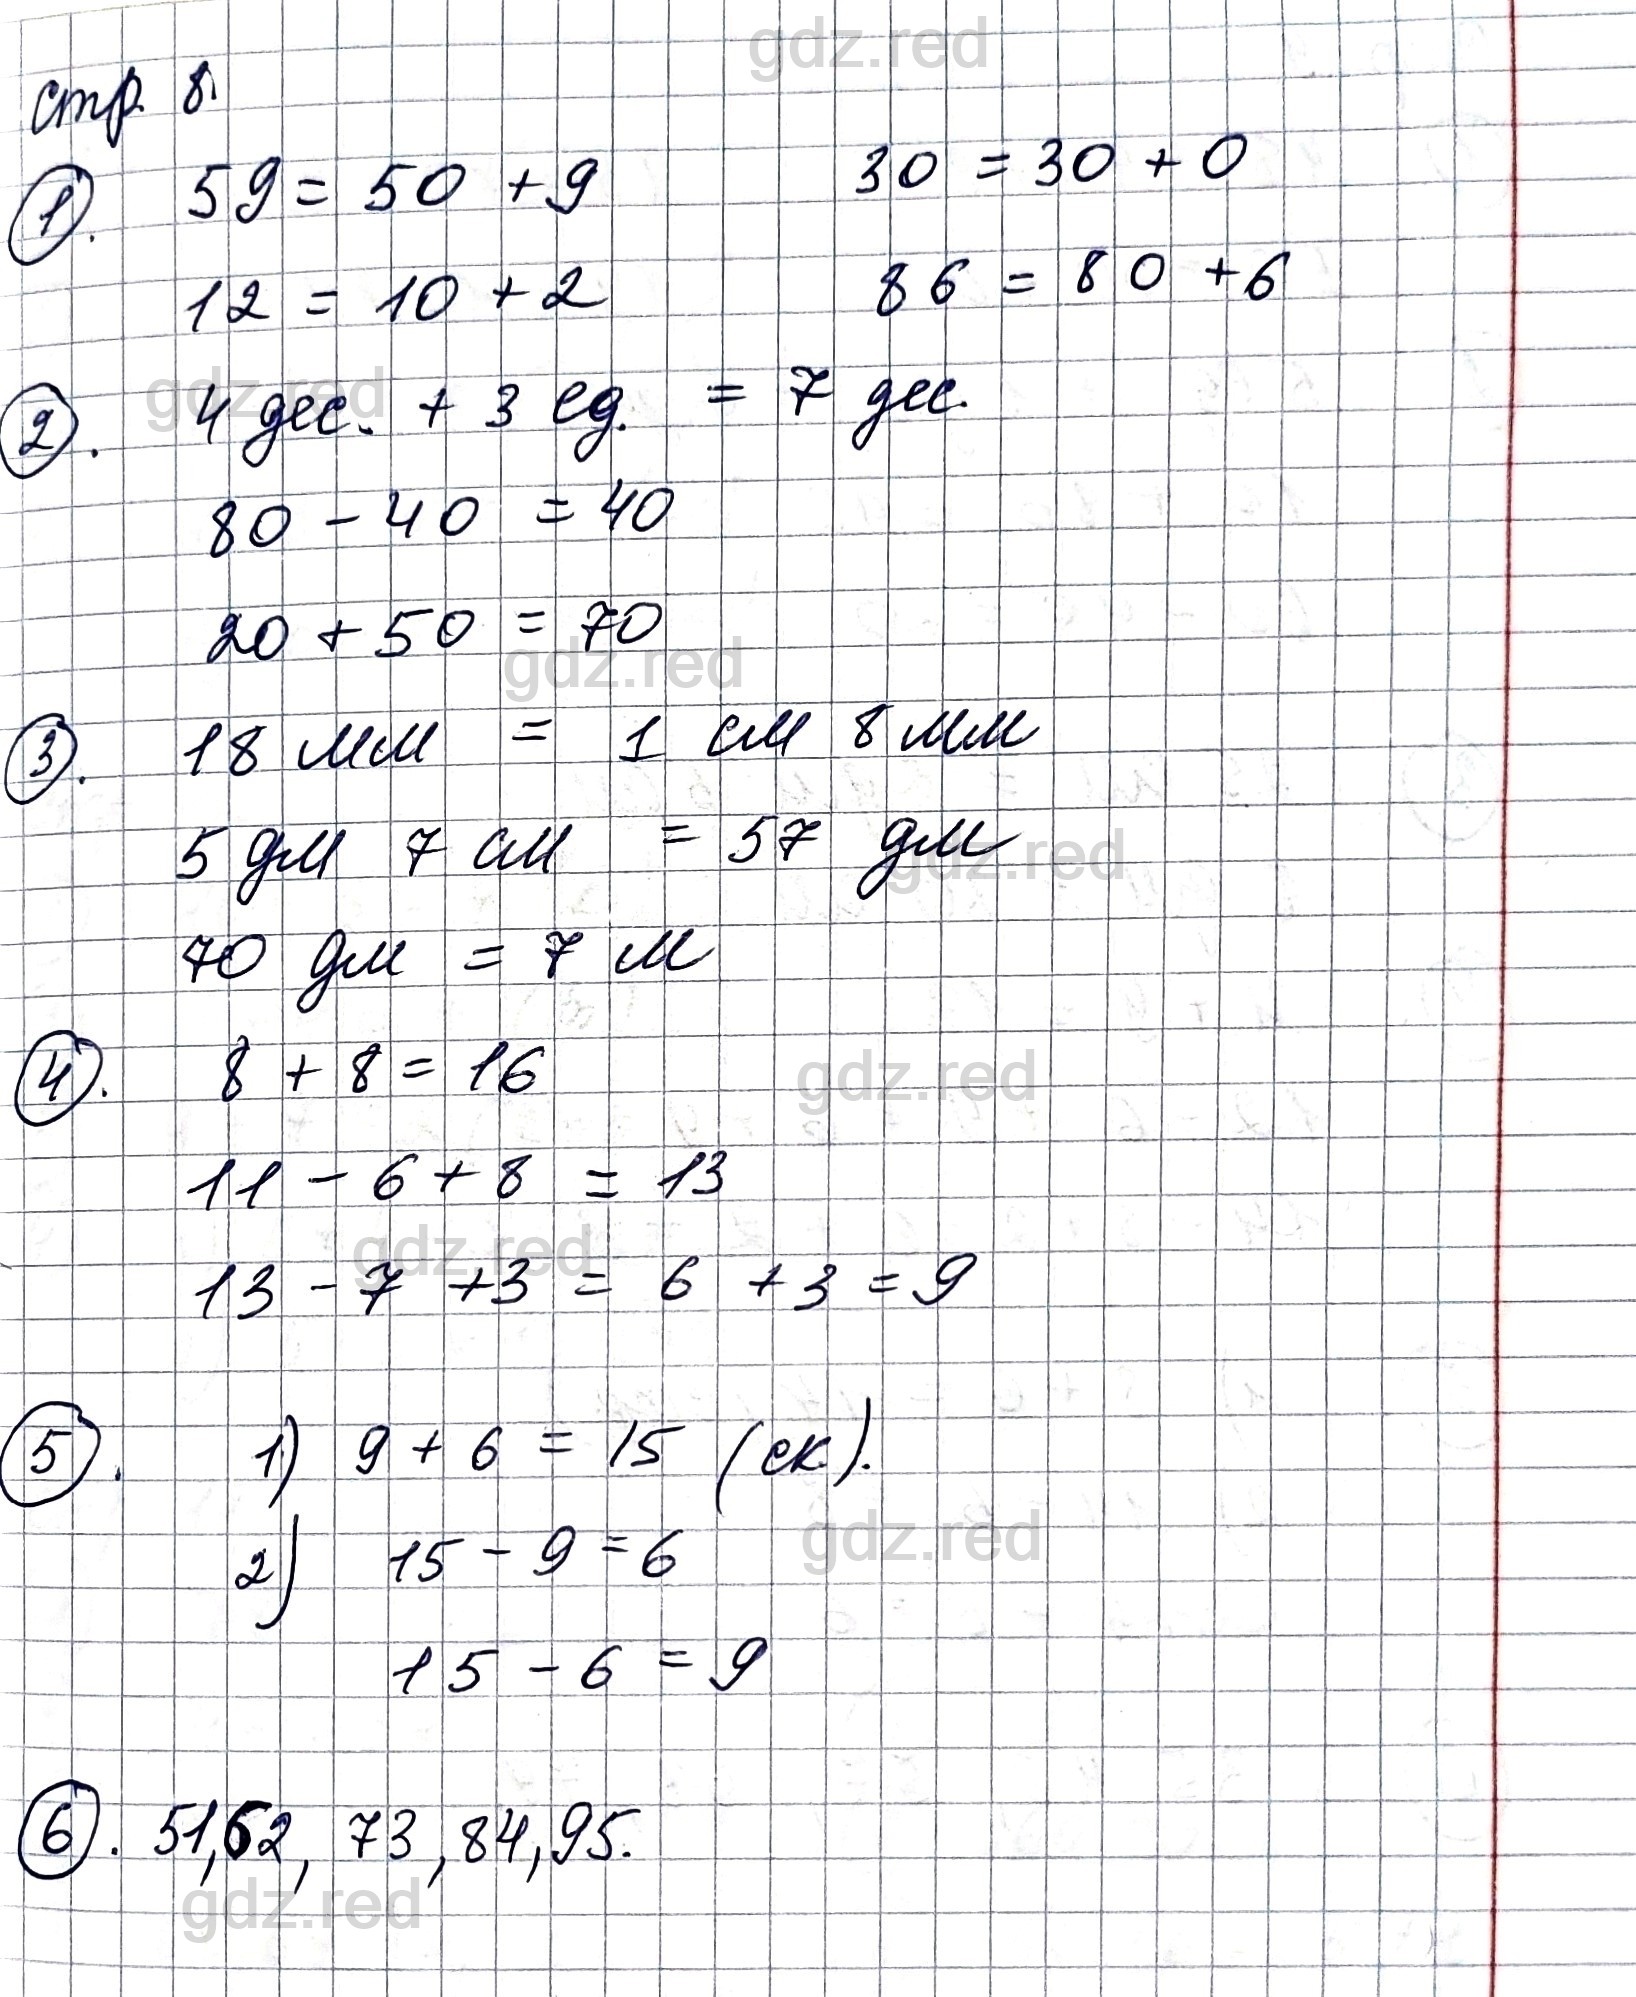 gdz.red
стр. 8.
1. 59 = 50 + 9 30 = 30 + 0
12 = 10 + 2 86 = 80 + 6
gdz.red
2. 4 дес. + 3 ед. = 7 дес.
80 - 40 = 40
20 + 50 = 70
gdz.red
3. 18 мм = 1 см 8 мм
5 дм 7 см = 57 дм
gdz.red
70 дм = 7 м
4. 8 + 8 = 16
gdz.red
11 - 6 + 8 = 13
gdz.red
13 - 7 + 3 = 6 + 3 = 9
5. 1) 9 + 6 = 15 (ск).
gdz.red
2) 15 - 9 = 6
15 - 6 = 9
6. 51, 62, 73, 84, 95.
gdz.red